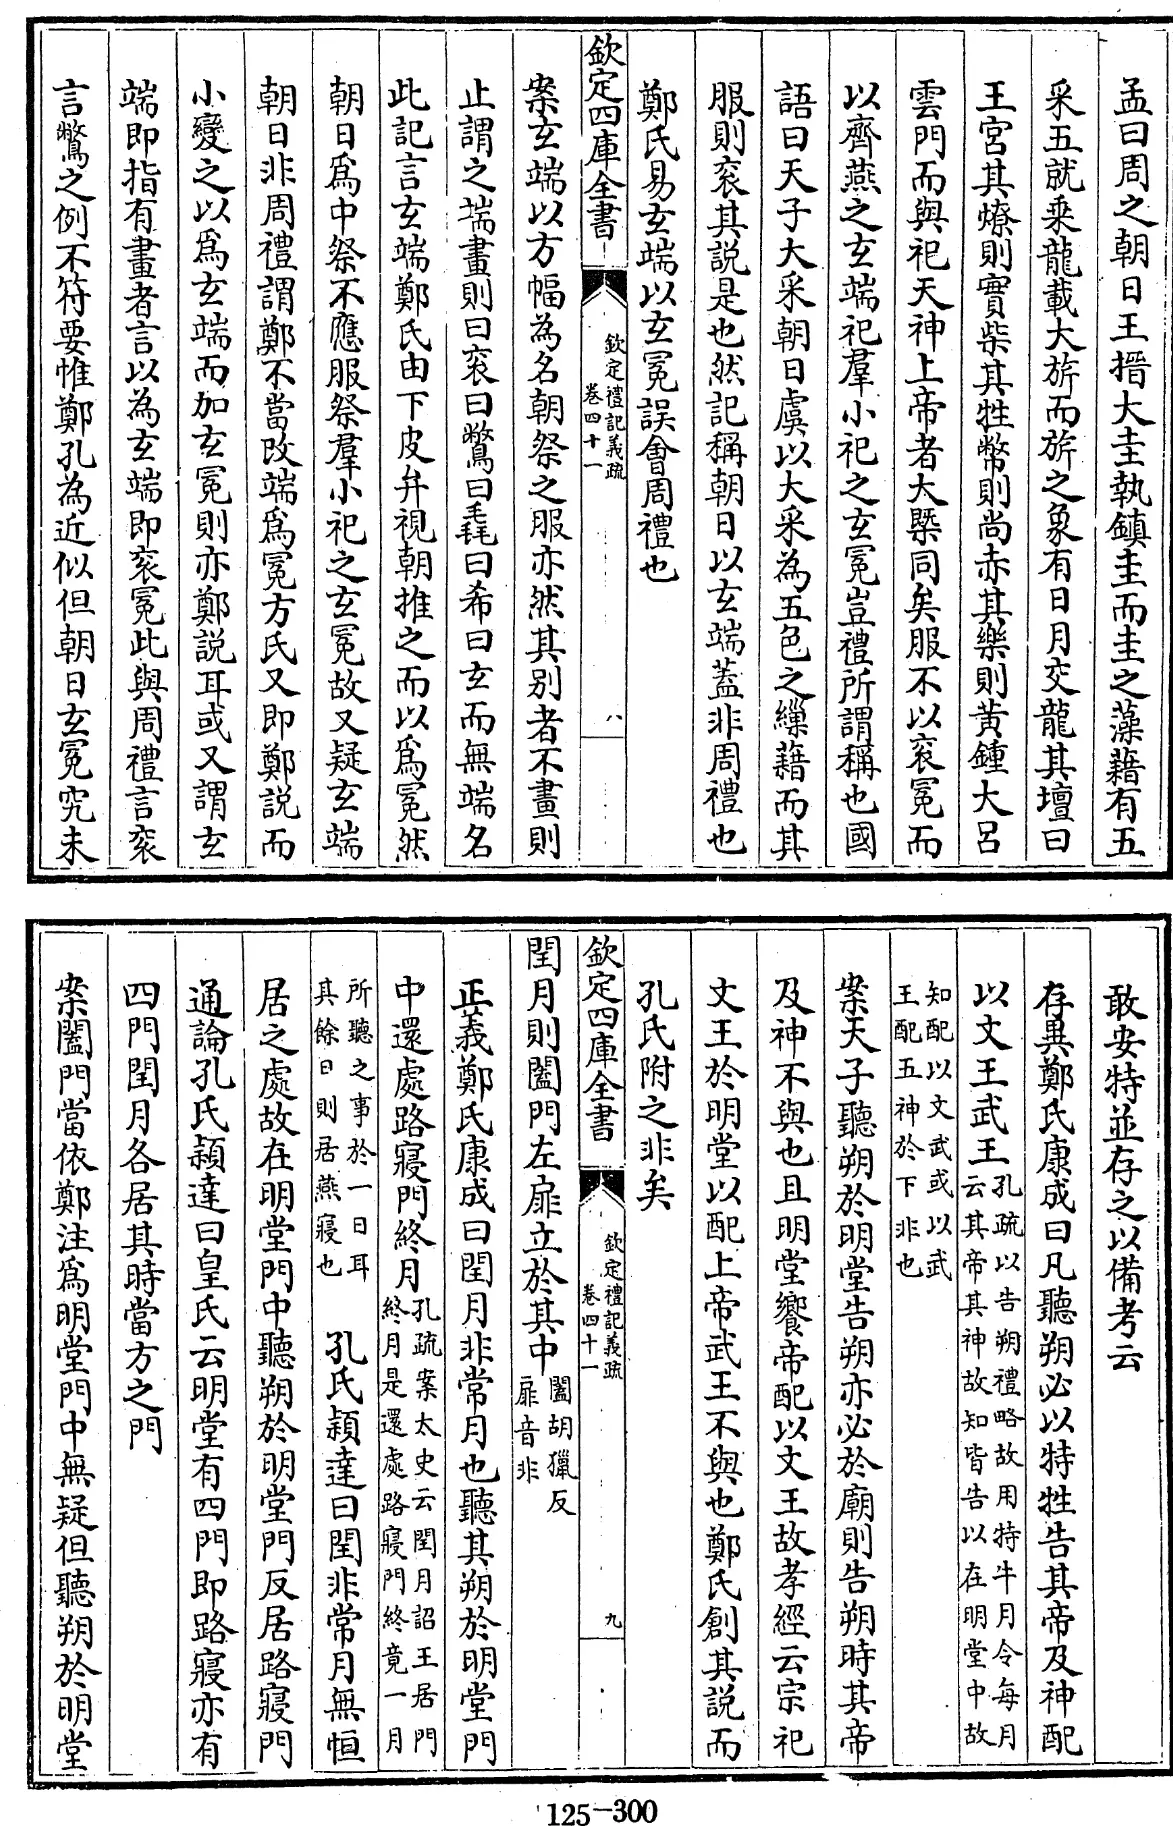 孟曰周之朝日王搢大圭執鎮圭而圭之藻藉有五
采五就乘龍載大旂而旂之象有日月交龍其壇曰
王宮其燎則實柴其牲幣則尚赤其樂則黃鍾大呂
雲門而與祀天神上帝者大槩同矣服不以衮冕而
以齊燕之玄端祀羣小祀之玄冕豈禮所謂稱也國
語曰天子大采朝日虞以大采為五色之繅藉而其
服則衮其說是也然記稱朝日以玄端蓋非周禮也
鄭氏易玄端以玄冕誤會周禮也
欽定四庫全書
欽定禮記義疏
卷四十一
八
案玄端以方幅為名朝祭之服亦然其別者不畫則
止謂之端畫則曰衮曰鷩曰毳曰希曰玄而無端名
此記言玄端鄭氏由下皮弁視朝推之而以爲冕然
朝日爲中祭不應服祭羣小祀之玄冕故又疑玄端
朝日非周禮謂鄭不當改端爲冕方氏又即鄭説而
小變之以爲玄端而加玄冕則亦鄭説耳或又謂玄
端即指有畫者言以為玄端即衮冕此與周禮言衮
言鷩之例不符要惟鄭孔為近似但朝日玄冕究未
敢安特並存之以備考云
存異鄭氏康成曰凡聽朔必以特牲告其帝及神配
以文王武王孔疏以告朔禮略故用特牛月令每月
云其帝其神故知皆告以在明堂中故
知配以文武或以武
王配五神於下非也
案天子聽朔於明堂告朔亦必於廟則告朔時其帝
及神不與也且明堂饗帝配以文王故孝經云宗祀
文王於明堂以配上帝武王不與也鄭氏創其説而
孔氏附之非矣
欽定四庫全書
欽定禮記義疏
卷四十一
九
閏月則闔門左扉立於其中闔胡獵反
扉音非
正義鄭氏康成曰閏月非常月也聽其朔於明堂門
中還處路寢門終月孔疏案太史云閏月詔王居門
終月是還處路寢門終竟一月
所聽之事於一日耳
其餘日則居燕寢也
孔氏穎達曰閏非常月無恒
居之處故在明堂門中聽朔於明堂門反居路寢門
通論孔氏穎達曰皇氏云明堂有四門即路寢亦有
四門閏月各居其時當方之門
案闔門當依鄭注爲明堂門中無疑但聽朔於明堂
125-300